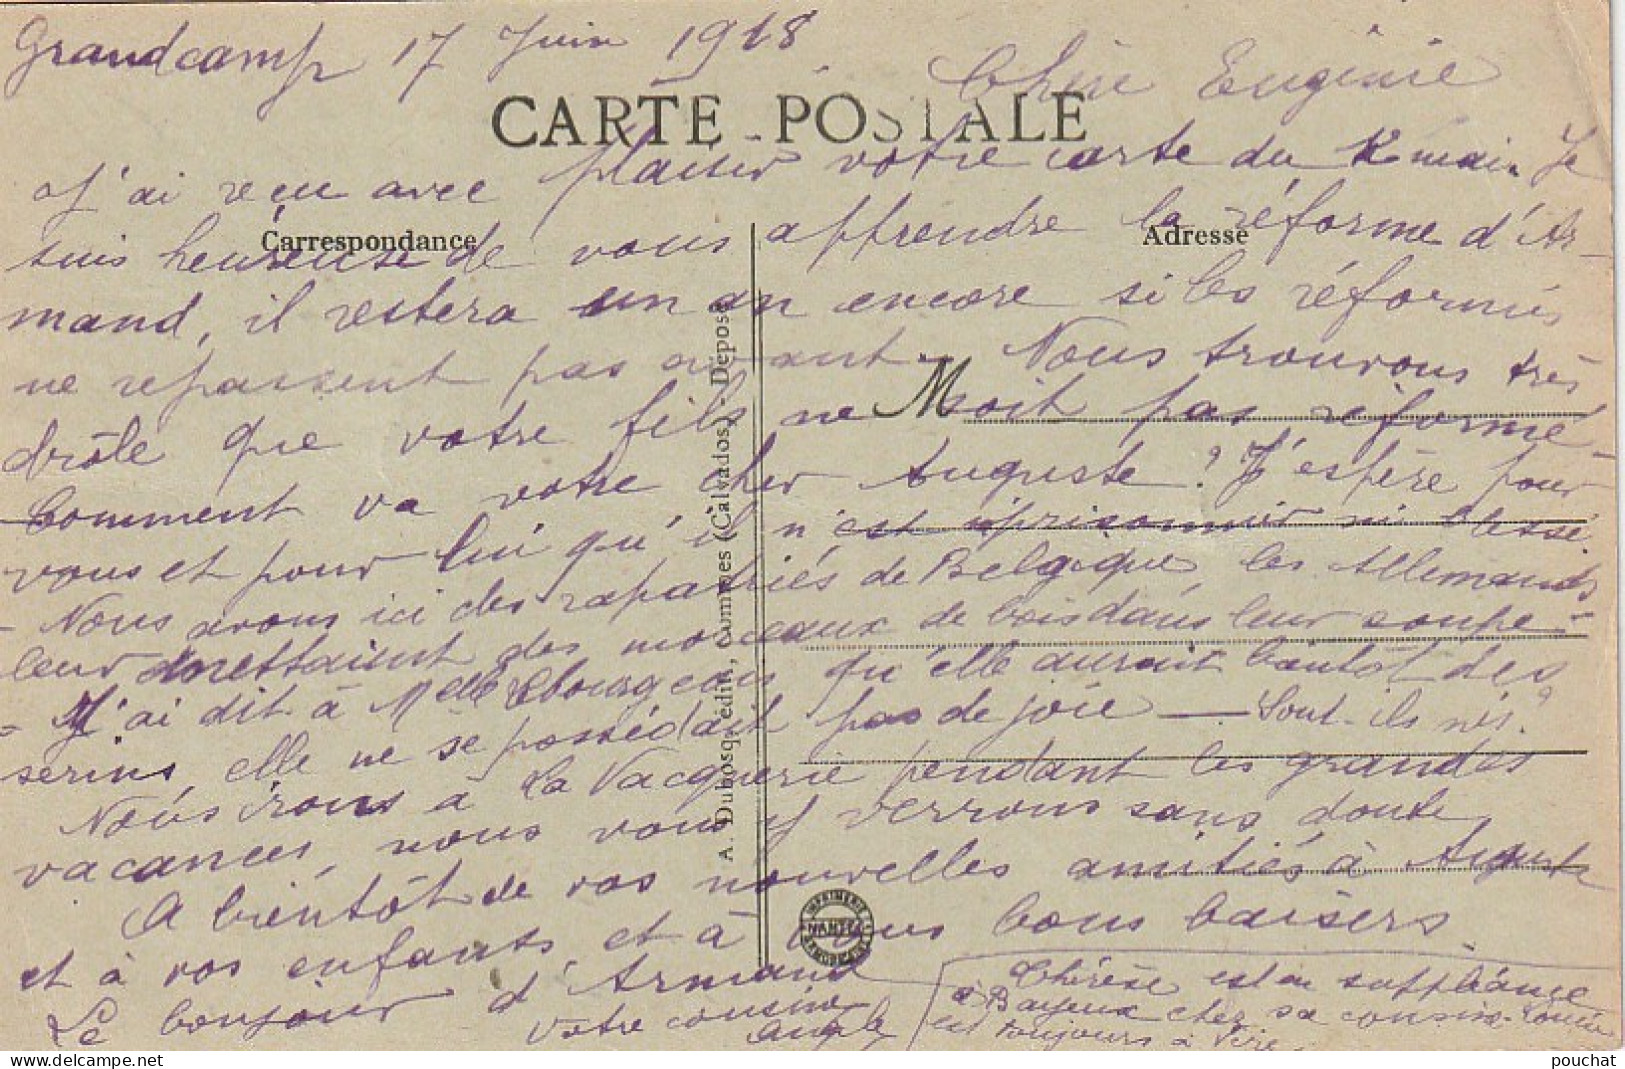 Grandcamp 17 Juin 1918
Chère Eugénie
CARTE POSTALE
J'ai reçu avec plaisir votre carte du 12 mai. Je
suis heureuse de vous apprendre la réforme d'Ar-
Correspondance
Adresse
mand, il restera un an encore si les réformés
ne repassent pas avant. Nous trouvons très
drôle que votre fils ne soit pas réformé
M
Comment va votre cher Auguste ? J'espère pour
vous et pour lui qu'il n'est ni prisonnier ni blessé.
- Nous avons ici des rapatriés de Belgique, les Allemands
leur mettaient des morceaux de bois dans leur soupe.
- J'ai dit à Melle Lebourgeois qu'elle aurait bientôt des
serins, elle ne se possédait pas de joie — Sont-ils nés ?
Nous irons à La Vacquerie pendant les grandes
vacances, nous vous y verrons sans doute.
A bientôt de vos nouvelles amitiés à Auguste
et à vos enfants et à vous bons baisers.
Le bonjour d'Armand
Votre cousine
Angèle
Thérèse est en suppléance
à Bayeux chez sa cousine.
est toujours à Vire.
A. Dubosq, édit., Commes (Calvados) - Déposé
IMPRIMERIE
NANTES
ARMORICAINE
pouchat